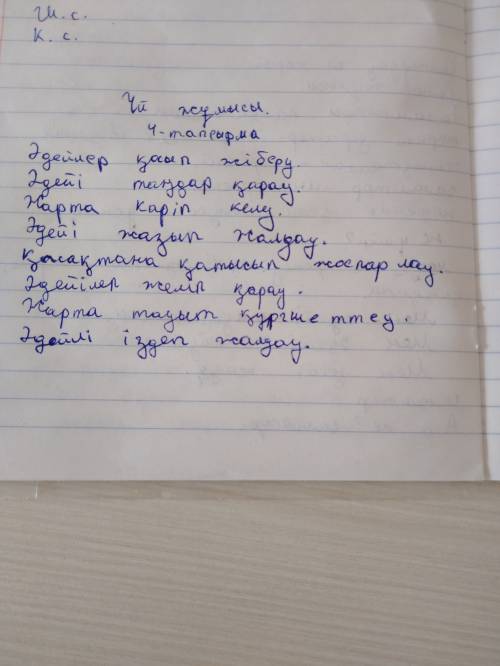 Ш. с.
К. с.
Үй жұмысы.
4-тапсырма
Әдейлер қаып жіберу.
Әдейі таңдар қарау.
Жарта каріп келу.
Әдейі жазып жалдау.
қасақтана қатысып жоспарлау.
Әдейілер желіп қарау.
Жарта тазып құргше ттеу.
Әдейлі іздеп жалдау.